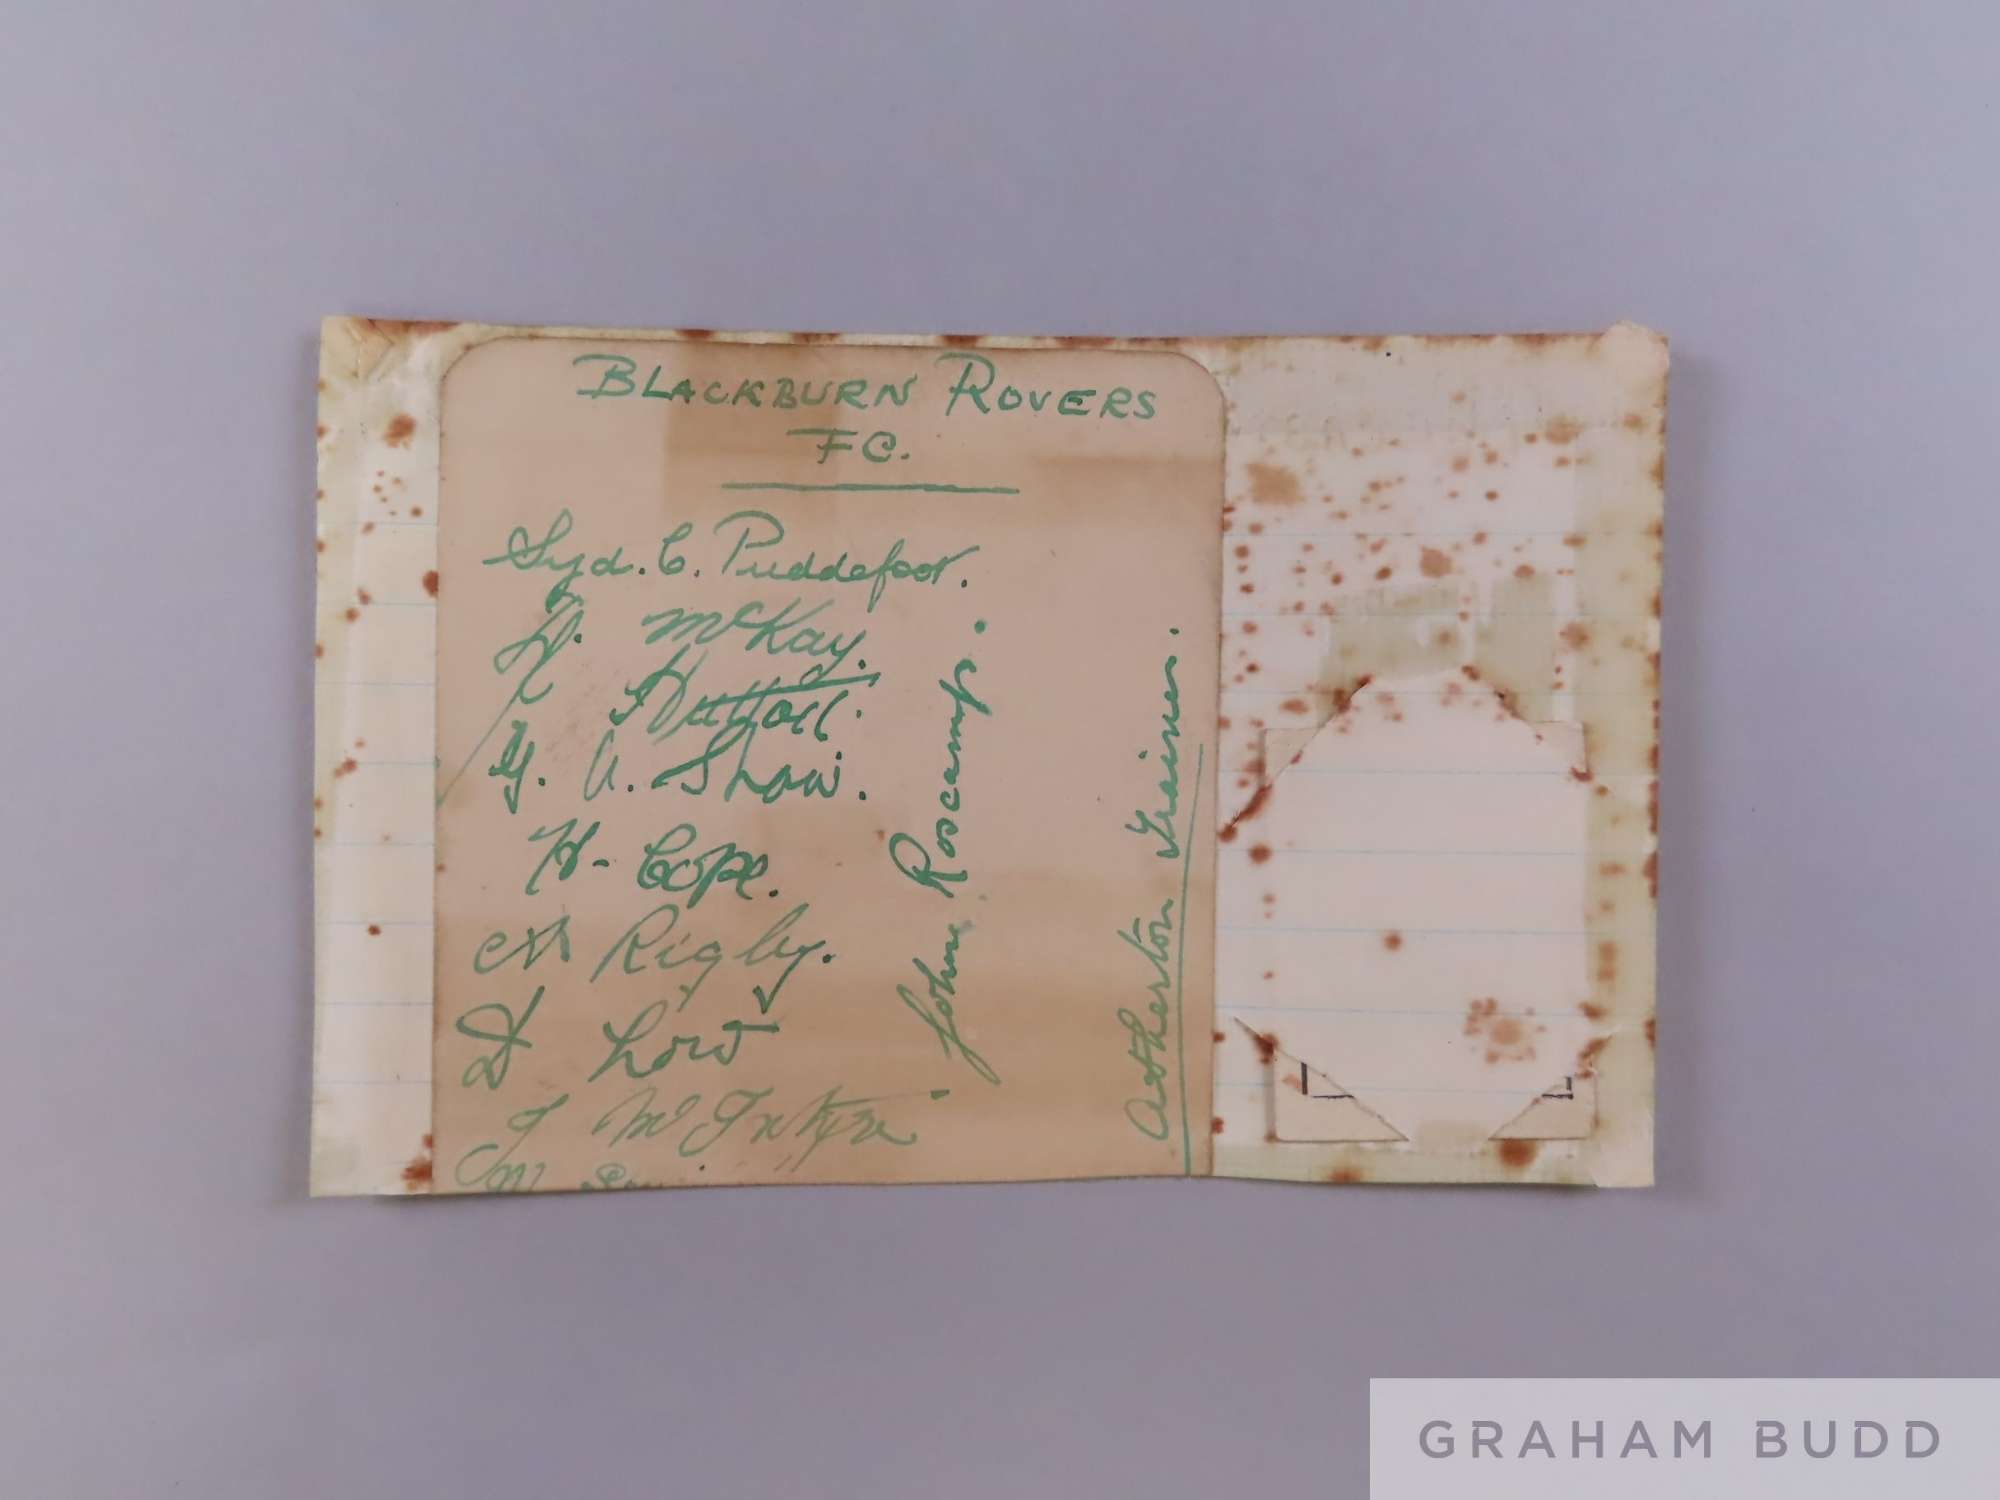 BLACKBURN ROVERS
FC.
Syd. C. Puddefoot.
McKay.
Hutton.
G. A. Shaw.
H. Cope.
A Rigby.
Lord
J McIntyre
John Roscamp.
Atherton Trainer.
GRAHAM BUDD